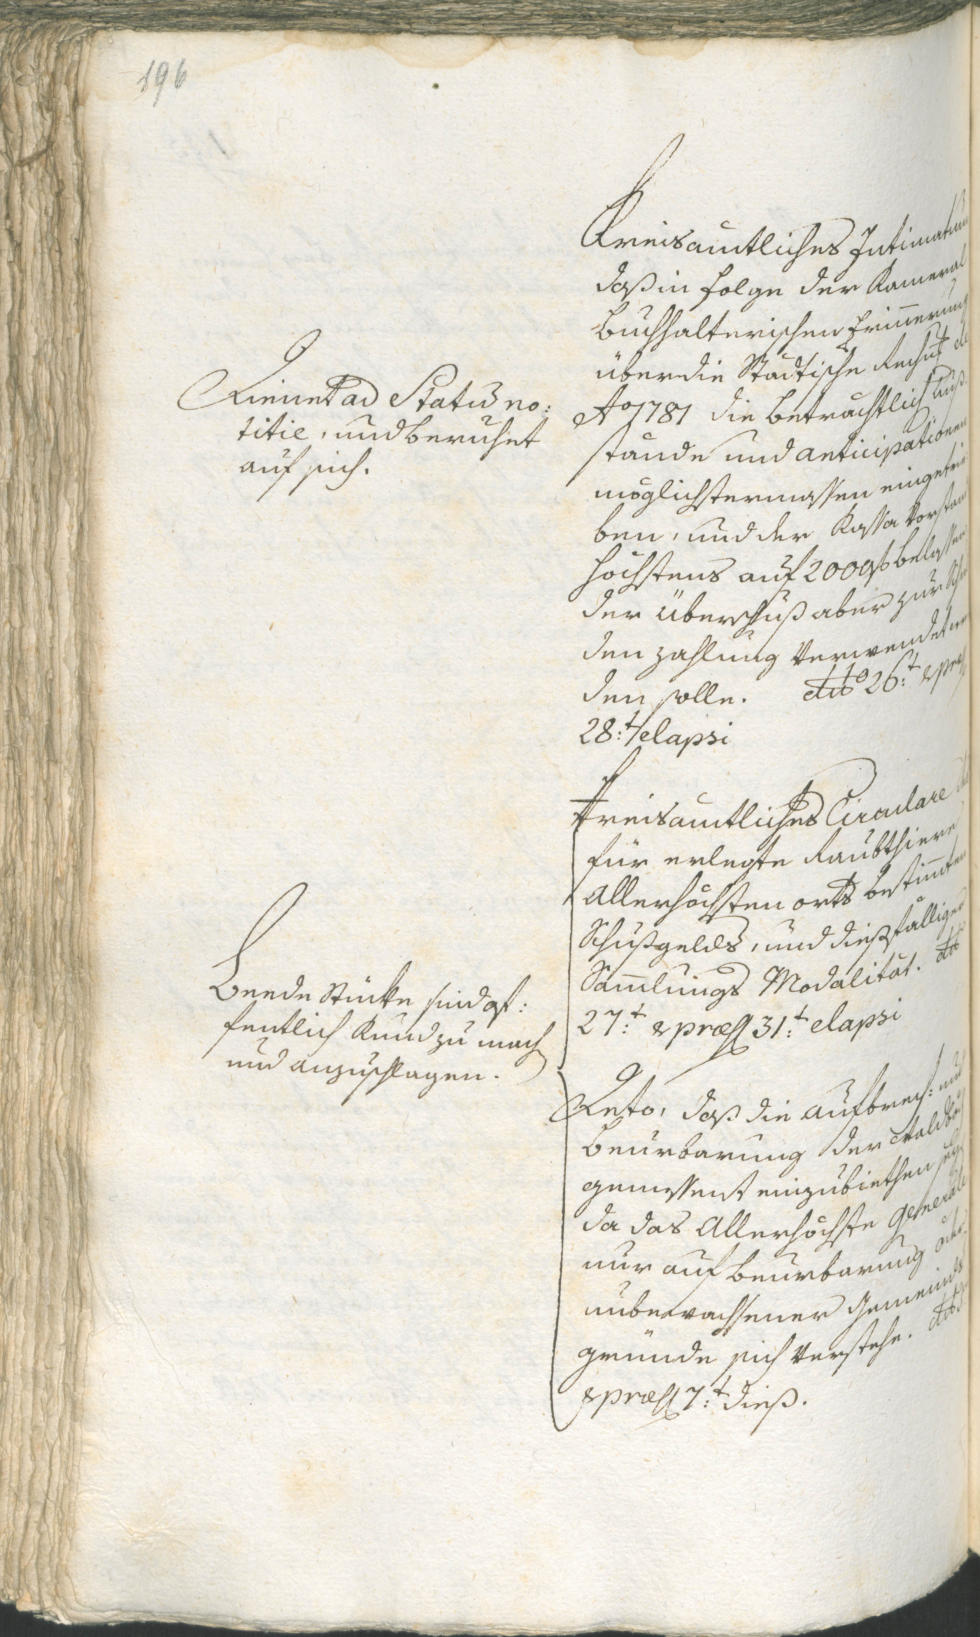 196
Kreisamtliches Intimatum
daß in Folge der Kameral
Buchhalterischen Erinnerung
über die Stadtische Rechng de
Ao 1781 die beträchtlich Auß
stände und anticipationen
möglichstermassen eingetrie
ben, und der Kassa Vorstand
höchstens auf 200 f belassen
der überschuß aber zur Schul
den zahlung Verwendet wer
den solle. dto 26:t & præs
28:t elapsi
Dienet ad Statum no:
titiæ, und beruhet
auf sich.
Kreisamtliches Circulare
für erlegte Raubthiere
Allerhöchsten orts bestimten
Schußgelds, und dießfälliger
Samlungs Modalität. dto
27:t & præs 31:t elapsi
Beede Stücke sind öf:
fentlich Kund zu mach
und anzuschlagen.
Deto, daß die aufbrech: und
Beurbarung der Waldböd
gemessenst einzubiethen seye
da das Allerhöchste Generale
nur auf Beurbarung öder
unbewachsener Gemeinds
gründe sich Verstehe. dto
& præs 7:t dieß.